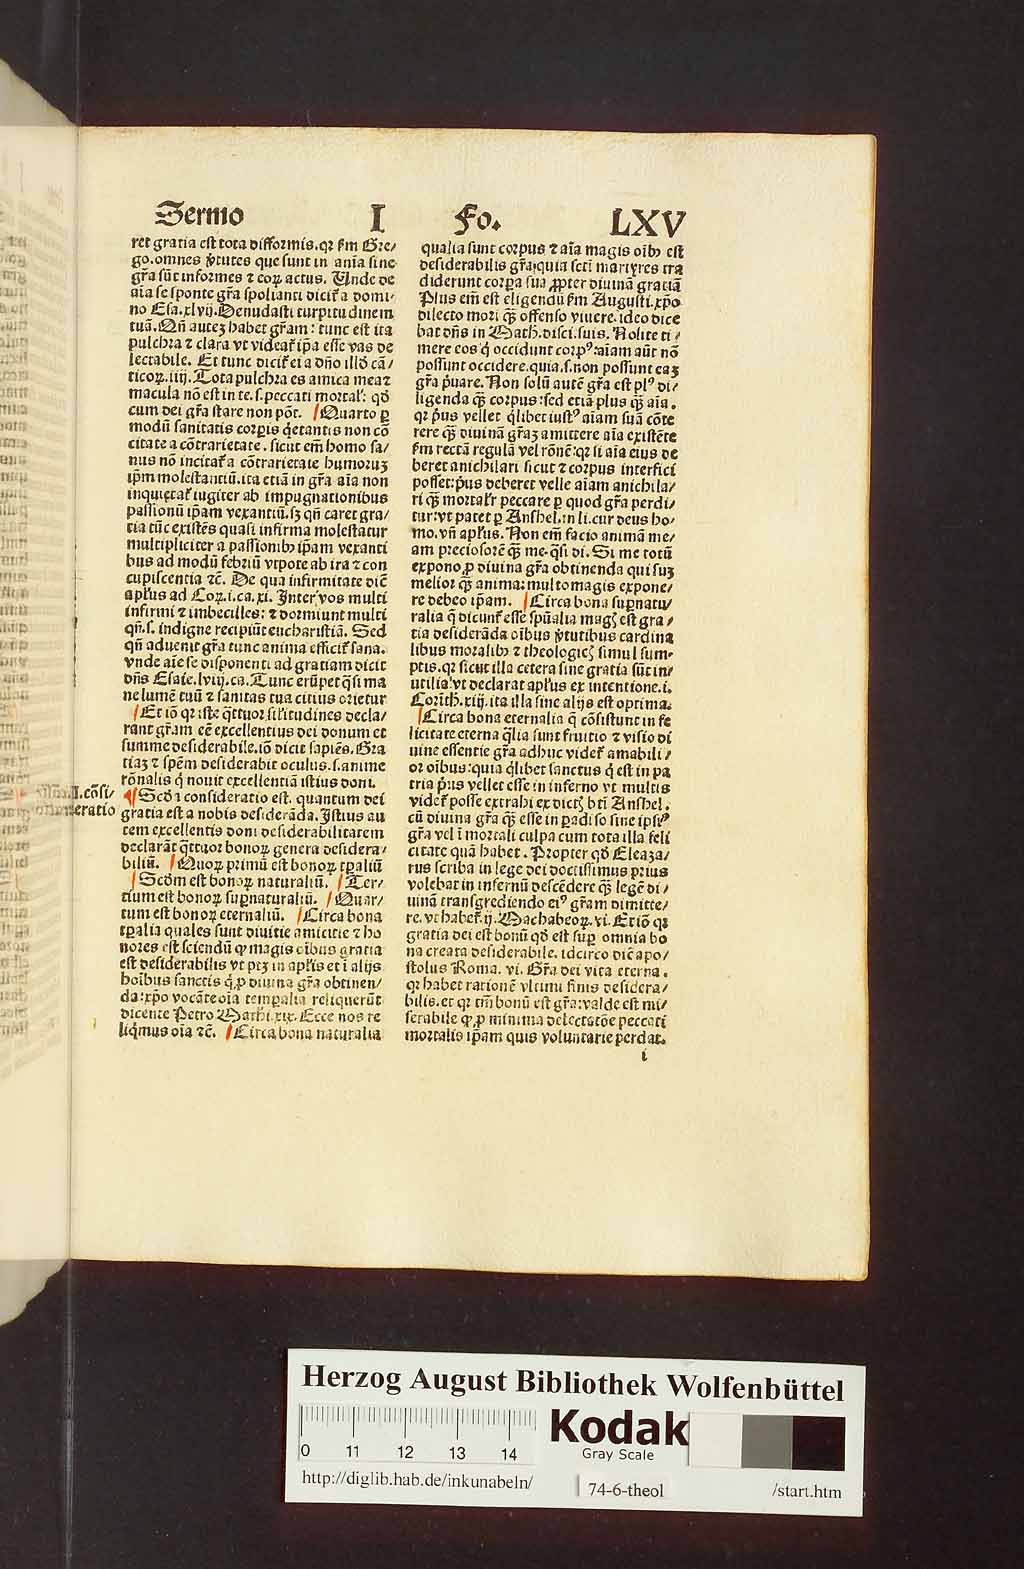 Sermo I Fo. LXV
ret gratia est tota difformis. qꝛ ẜm Gre/
go. omnes ꝟtutes que sunt in aīa sine
gr̄a sūt informes ⁊ eoꝝ actus. Unde de
aīa se sponte gr̄a spolianti dicit̄ a domi-
no Esa. xlvij. Denudasti turpitudinem
tuā. Qn̄ autez habet gr̄am: tunc est ita
pulchra ⁊ clara vt videat̄ ip̄a esse vas de
lectabile. Et tunc dicit̄ ei a dn̄o illō cā/
ticoꝝ. iiij. Tota pulchra es amica mea ⁊
macula nō est in te. s. peccati mortal': qꝺ
cum dei gr̄a stare non pōt. Quarto ꝑ
modū sanitatis corꝑis q̄etantis non cō
citate a cōtrarietate. sicut em̄ homo sa/
nus nō incitat̄ a cōtrarietate humoruꝫ
ip̄m molestantiū. ita etiā in gr̄a aīa non
inquietat̄ iugiter ab impugnationibus
passionū ip̄am vexantiū. sꝫ qn̄ caret gra/
tia tūc existēs quasi infirma molestatur
multipliciter a passionibꝫ ip̄am vexanti
bus ad modū febriū vtpote ab ira ⁊ con
cupiscentia ⁊c̄. De qua infirmitate dic̄
apl̄us ad Coꝝ. i. ca. xi. Inter vos multi
infirmi ⁊ imbecilles: ⁊ dormiunt multi
qn̄. s. indigne recipiūt eucharistiā. Sed
qn̄ aduenit gr̄a tunc anima efficit̄ sana.
vnde aīe se disponenti ad gratiam dicit
dn̄s Esaie. lviij. ca. Tunc erūpet q̄si ma
ne lumē tuū ⁊ sanitas tua citius orietur
Et iō qꝛ iste q̄ttuor sil'itudines decla/
rant gr̄am eē excellentius dei donum et
summe desiderabile. iō dicit sapiēs. Gra
tiaꝫ ⁊ spēm desiderabit oculus. s. anime
rōnalis q̇ nouit excellentiā istius doni.
II. cōsi-
deratio
¶ Scd'a consideratio est. quantum dei
gratia est a nobis desiderāda. Istius au
tem excellentis doni desiderabilitatem
declarāt q̄ttuor bonoꝝ genera desidera/
biliū. Quoꝝ primū est bonoꝝ tꝑaliū
Scd'm est bonoꝝ naturaliū. Ter/
tium est bonoꝝ suꝑnaturaliū. Quar/
tum est bonoꝝ eternaliū. Circa bona
tꝑalia quales sunt diuitie amicitie ⁊ ho
nores est sciendū ꝙ magis oībus gratia
est desiderabilis vt ptꝫ in apl̄is et ī alijs
hoībus sanctis q̇ ꝓ diuina gr̄a obtinen/
da: xp̄o vocāte oīa temꝑalia reliquerūt
dicente Petro Math. xix. Ecce nos re
liq̇mus oīa ⁊c̄. Circa bona naturalia
qualia sunt corpus ⁊ aīa magis oībꝫ est
desiderabilis gr̄a: quia scti martyres tra
diderunt corꝑa sua ꝓpter diuinā gratiā
Plus em̄ est eligendū ẜm Augusti. xp̄o
dilecto mori q̄ꝫ offenso viuere. ideo dice
bat dn̄s in Math. disci. suis. Nolite ti/
mere eos q̇ occidunt corpꝰ: aīam aūt nō
possunt occidere. quia. s. non possunt eaꝫ
gr̄a p̄uare. Non solū autē gr̄a est plꝰ di/
ligenda q̄ꝫ corpus: sed etiā plus q̄ꝫ aīa.
qꝛ p̄us vellet q̇libet iustꝰ aīam suā cōte
rere q̄ꝫ diuinā gr̄aꝫ amittere aīa existēte
ẜm rectā regulā vel rōnē: qꝛ si aīa eius de
beret anichilari sicut ⁊ corpus interfici
posset: p̄us deberet velle aīam anichila/
ri q̄ꝫ mortal'r peccare ꝑ quod gr̄a perdi/
tur: vt patet ꝑ Anshel. in li. cur deus ho/
mo. vn̄ apl̄us. Non em̄ facio animā me/
am preciosorē q̄ꝫ me. q̄si di. Si me totū
expono ꝓ diuina gr̄a obtinenda qui suꝫ
melior q̄ꝫ anima: multomagis expone/
re debeo ip̄am. Circa bona suꝑnatu/
ralia q̄ dicunt̄ esse spūalia mag' est gra/
tia desiderāda oībus ꝟtutibus cardina
libus moralibꝫ ⁊ theologic' simul sum-
ptis. qꝛ sicut illa cetera sine gratia sūt in/
utilia: vt declarat apl̄us ex intentione. i.
Corīth. xiij. ita illa sine alijs est optima.
Circa bona eternalia q̄ cōsistunt in fe
licitate eterna q̄lia sunt fruitio ⁊ visio di
uine essentie gr̄a adhuc videt̄ amabili/
or oībus: quia q̇libet sanctus q̇ est in pa
tria p̄us vellet esse in inferno vt multis
videt̄ posse extrahi ex dict' bti Anshel.
cū diuina gr̄a q̄ꝫ esse in ꝑadiso sine ipsiꝰ
gr̄a vel ī mortali culpa cum tota illa feli
citate quā habet. Propter qꝺ Eleaza/
rus scriba in lege dei doctissimus prius
volebat in infernū descēdere q̄ꝫ legē di/
uinā transgrediendo eiꝰ gr̄am dimitte/
re. vt habet̄. ij. Machabeoꝝ. vi. Et iō qꝛ
gratia dei est bonū qꝺ est suꝑ omnia bo
na creata desiderabile. idcirco dic̄ apo/
stolus Roma. vi. Gr̄a dei vita eterna.
qꝛ habet rationē vltimi finis desidera/
bilis. et qꝛ tm̄ bonū est gr̄a: valde est mi/
serabile ꝙ ꝓ minima delectatōe peccati
mortalis ip̄am quis voluntarie perdat.
i
Herzog August Bibliothek Wolfenbüttel
0 11 12 13 14
Kodak
Gray Scale
http://diglib.hab.de/inkunabeln/
74-6-theol
/start.htm